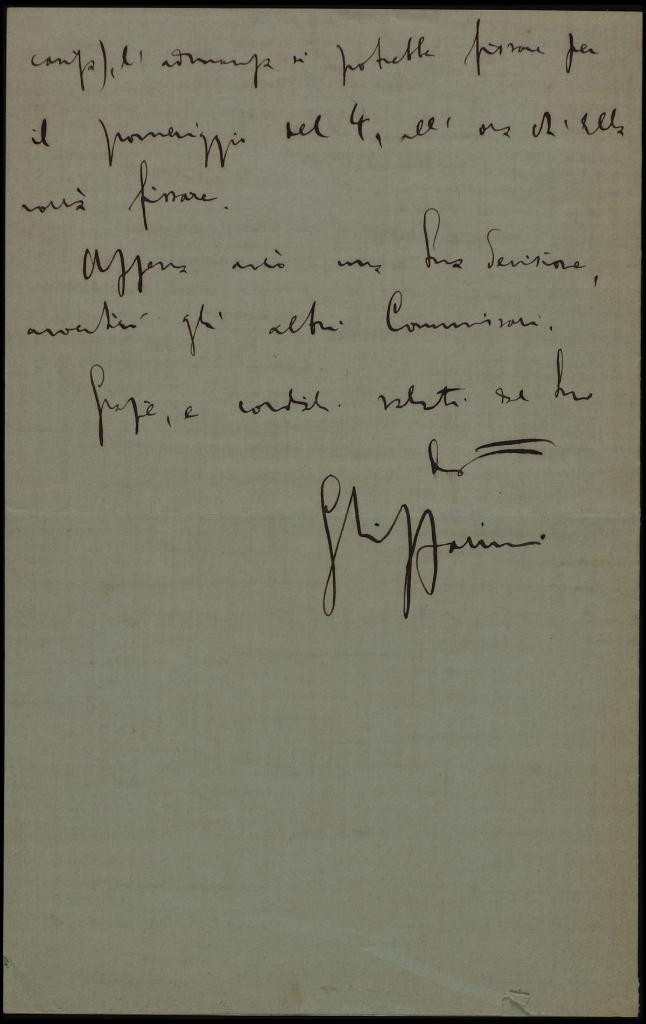 l'adunanza si potrebbe fissare per
il pomeriggio del 4, all'ora ch'Ella
vorrà fissare.
Appena avrò una Sua decisione,
avvertirò gli altri Commissari.
Grazie, e cordiali saluti dal Suo